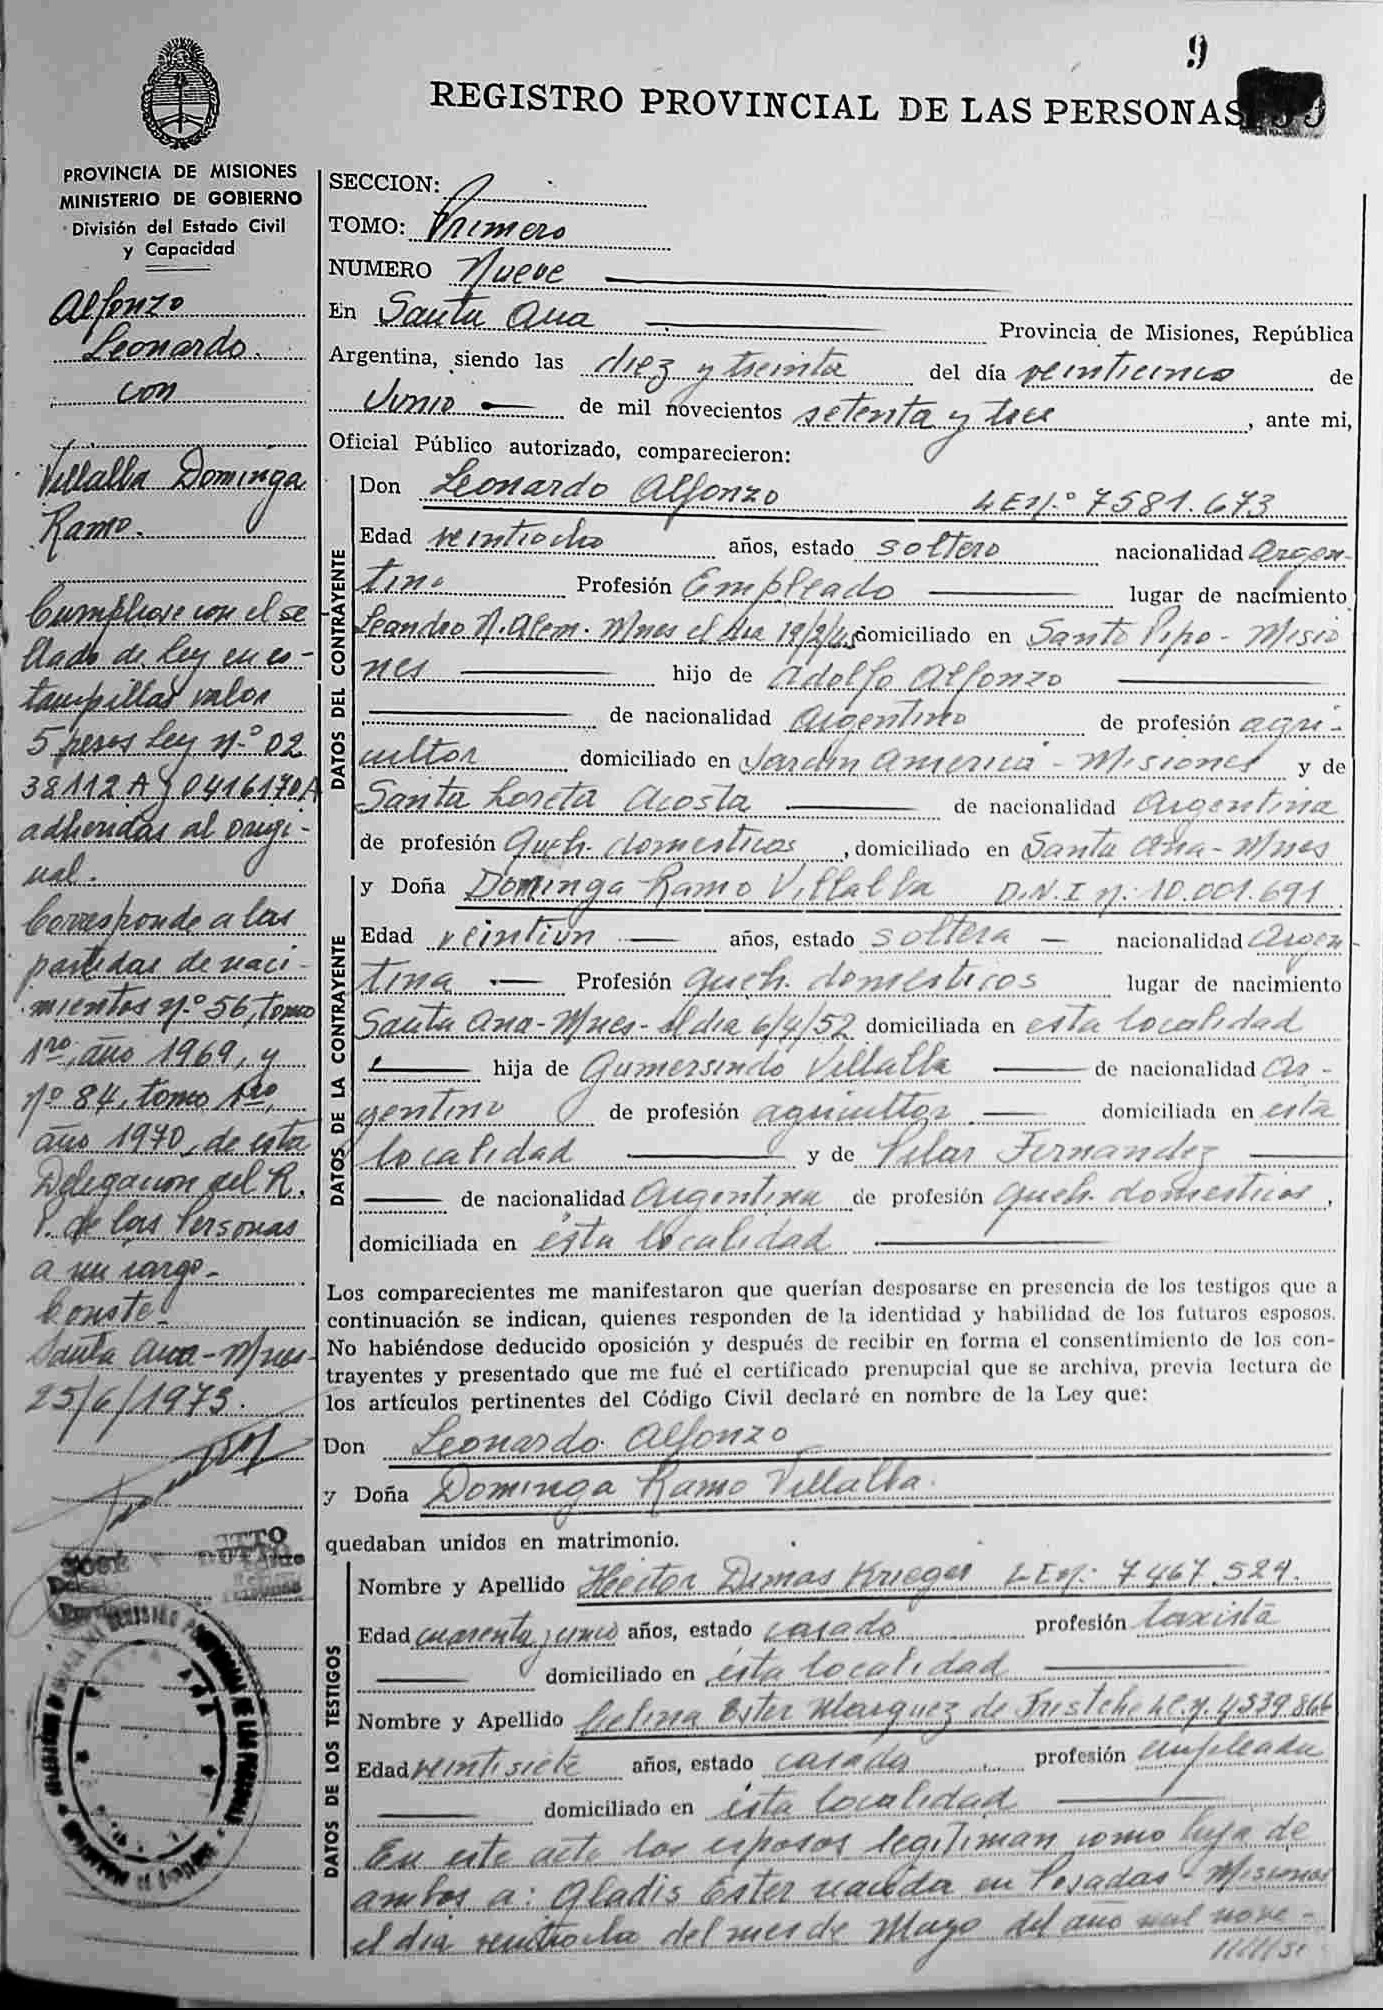 9
REGISTRO PROVINCIAL DE LAS PERSONAS
PROVINCIA DE MISIONES
MINISTERIO DE GOBIERNO
División del Estado Civil
y Capacidad
Alfonzo
Leonardo.
con
Villalba Dominga
Ramo.
Cumpliose con el se
llado de Ley en es-
tampillas valor
5 pesos Ley Nº 02
38112 A y 0416170A
adheridas al origi-
nal.
Corresponde a las
partidas de naci-
mientos Nº 56, tomo
1ro, año 1969, y
Nº 84, tomo 1ro,
año 1970, de esta
Delegacion del R.
P. de las Personas
a mi cargo-
Conste-
Santa Ana-Mnes-
25/6/1973.
JOSE DUTTO
SECCION:
TOMO: Primero
NUMERO Nueve
En Santa Ana Provincia de Misiones, República
Argentina, siendo las diez y treinta del día veinticinco de
Junio de mil novecientos setenta y tres, ante mi,
Oficial Público autorizado, comparecieron:
DATOS DEL CONTRAYENTE
Don Leonardo Alfonzo L E Nº 7581.673
Edad veintiocho años, estado soltero nacionalidad Argen-
tino Profesión Empleado lugar de nacimiento
Leandro N. Alem. Mnes el dia 19/2/45 domiciliado en Santo Pipo - Misio
nes hijo de Adolfo Alfonzo
de nacionalidad Argentino de profesión agri-
cultor domiciliado en Jardin America - Misiones y de
Santa Loreta Acosta de nacionalidad Argentina
de profesión queh. domesticos, domiciliado en Santa Ana - Mnes
DATOS DE LA CONTRAYENTE
y Doña Dominga Ramo Villalba D.N.I N: 10.001.691
Edad veintiun años, estado soltera nacionalidad Argen-
tina Profesión queh. domesticos lugar de nacimiento
Santa Ana-Mnes- el dia 6/4/52 domiciliada en esta localidad
hija de Gumersindo Villalba de nacionalidad Ar-
gentino de profesión agricultor domiciliada en esta
localidad y de Pilar Fernandez
de nacionalidad Argentina de profesión queh. domesticos,
domiciliada en ésta localidad
Los comparecientes me manifestaron que querían desposarse en presencia de los testigos que a
continuación se indican, quienes responden de la identidad y habilidad de los futuros esposos.
No habiéndose deducido oposición y después de recibir en forma el consentimiento de los con-
trayentes y presentado que me fué el certificado prenupcial que se archiva, previa lectura de
los artículos pertinentes del Código Civil declaré en nombre de la Ley que:
Don Leonardo Alfonzo
y Doña Dominga Ramo Villalba.
quedaban unidos en matrimonio.
DATOS DE LOS TESTIGOS
Nombre y Apellido Hector Dimas Krieger L E N: 7467.529.
Edad cuarenta y cinco años, estado casado profesión taxista
domiciliado en ésta localidad
Nombre y Apellido Celina Ester Marquez de Fristche L C. N. 4539.866
Edad veintisiete años, estado casada profesión empleada
domiciliado en ésta localidad
En este acto los esposos legitiman como hija de
ambos a: Gladis Ester nacida en Posadas - Misiones
el dia veintiocho del mes de Mayo del año mil nove-